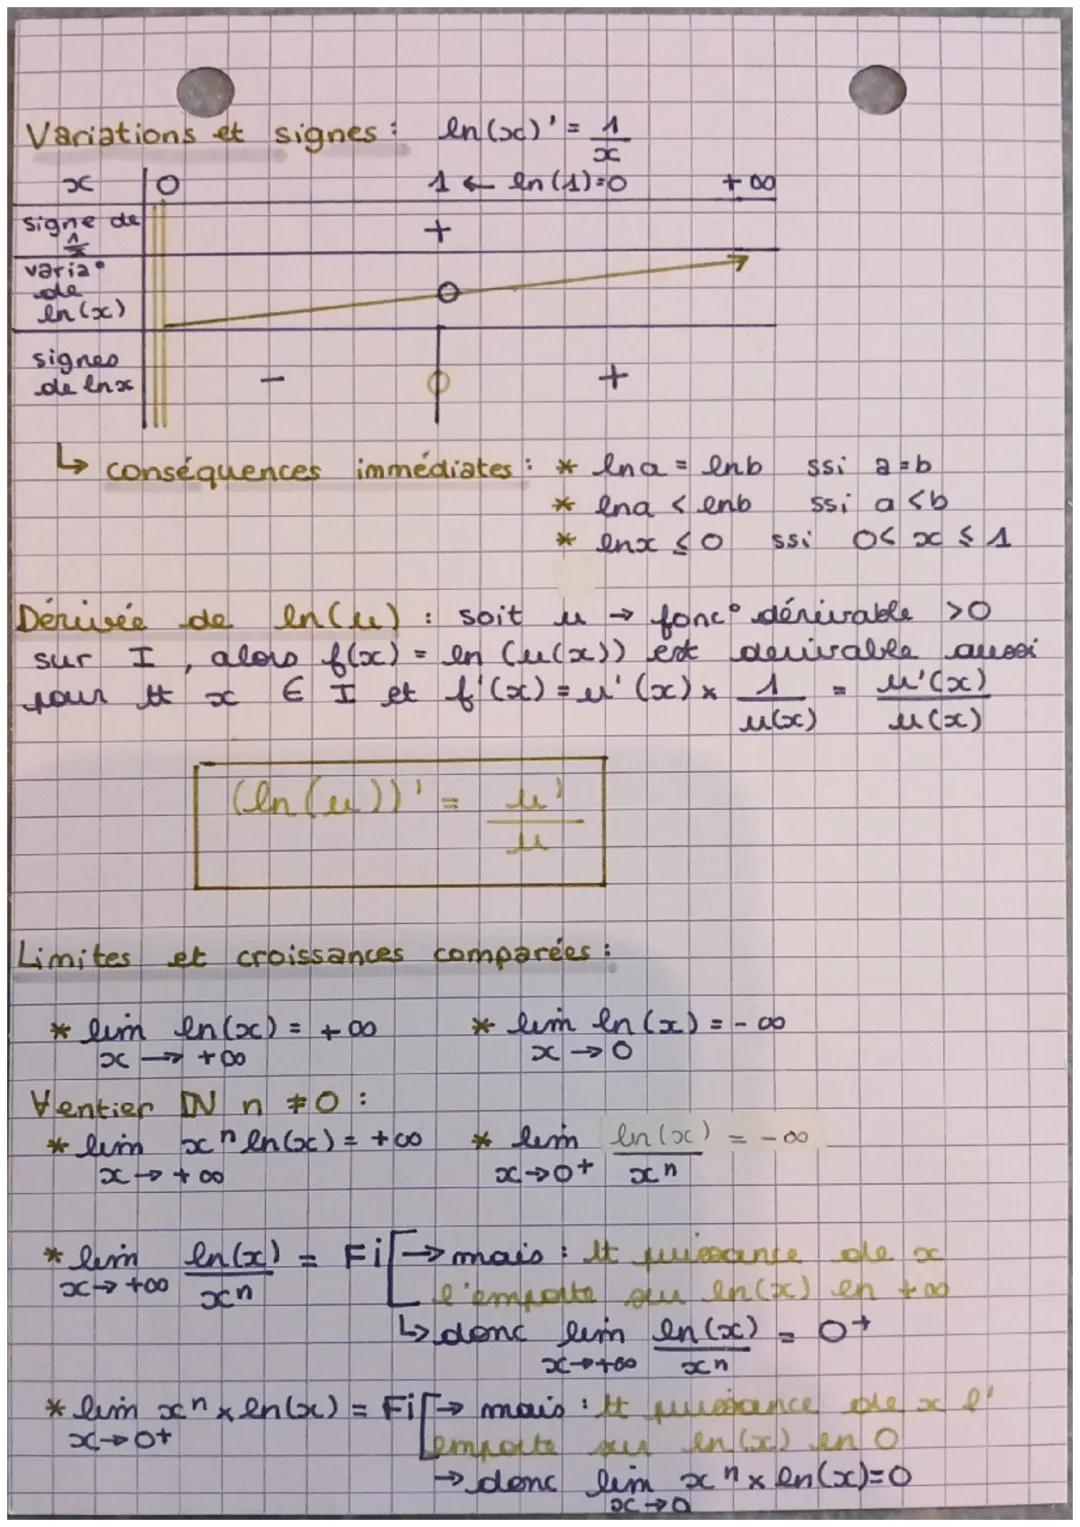 Variations et signes : ln(x)' = 1/x
x 0 1 ← ln(1)=0 +∞
signe de 1/x +
varia° de ln(x) 0
signes de lnx - 0 +
↳ conséquences immédiates : * lna = lnb ssi a=b
* lna < lnb ssi a<b
* lnx ≤ 0 ssi 0< x ≤ 1
Dérivée de ln(u) : soit u → fonc° dérivable >0
sur I, alors f(x) = ln (u(x)) est derivable aussi
pour tt x ∈ I et f'(x) = u'(x) × 1/u(x) = u'(x)/u(x)
(ln(u))' = u'/u
Limites et croissances comparées :
* lim x→+∞ ln(x) = +∞ * lim x→0 ln(x) = -∞
∀ entier ℕ n ≠ 0 :
* lim x→+∞ xⁿ ln(x) = +∞ * lim x→0+ ln(x)/xⁿ = -∞
* lim x→+∞ ln(x)/xⁿ = Fi → mais : tt puissance de x
l'emporte sur ln(x) en +∞
↳ donc lim x→+∞ ln(x)/xⁿ = 0+
* lim x→0+ xⁿ × ln(x) = Fi → mais : tt puissance de x l'
emporte sur ln(x) en 0
→ donc lim x→0 xⁿ × ln(x)=0